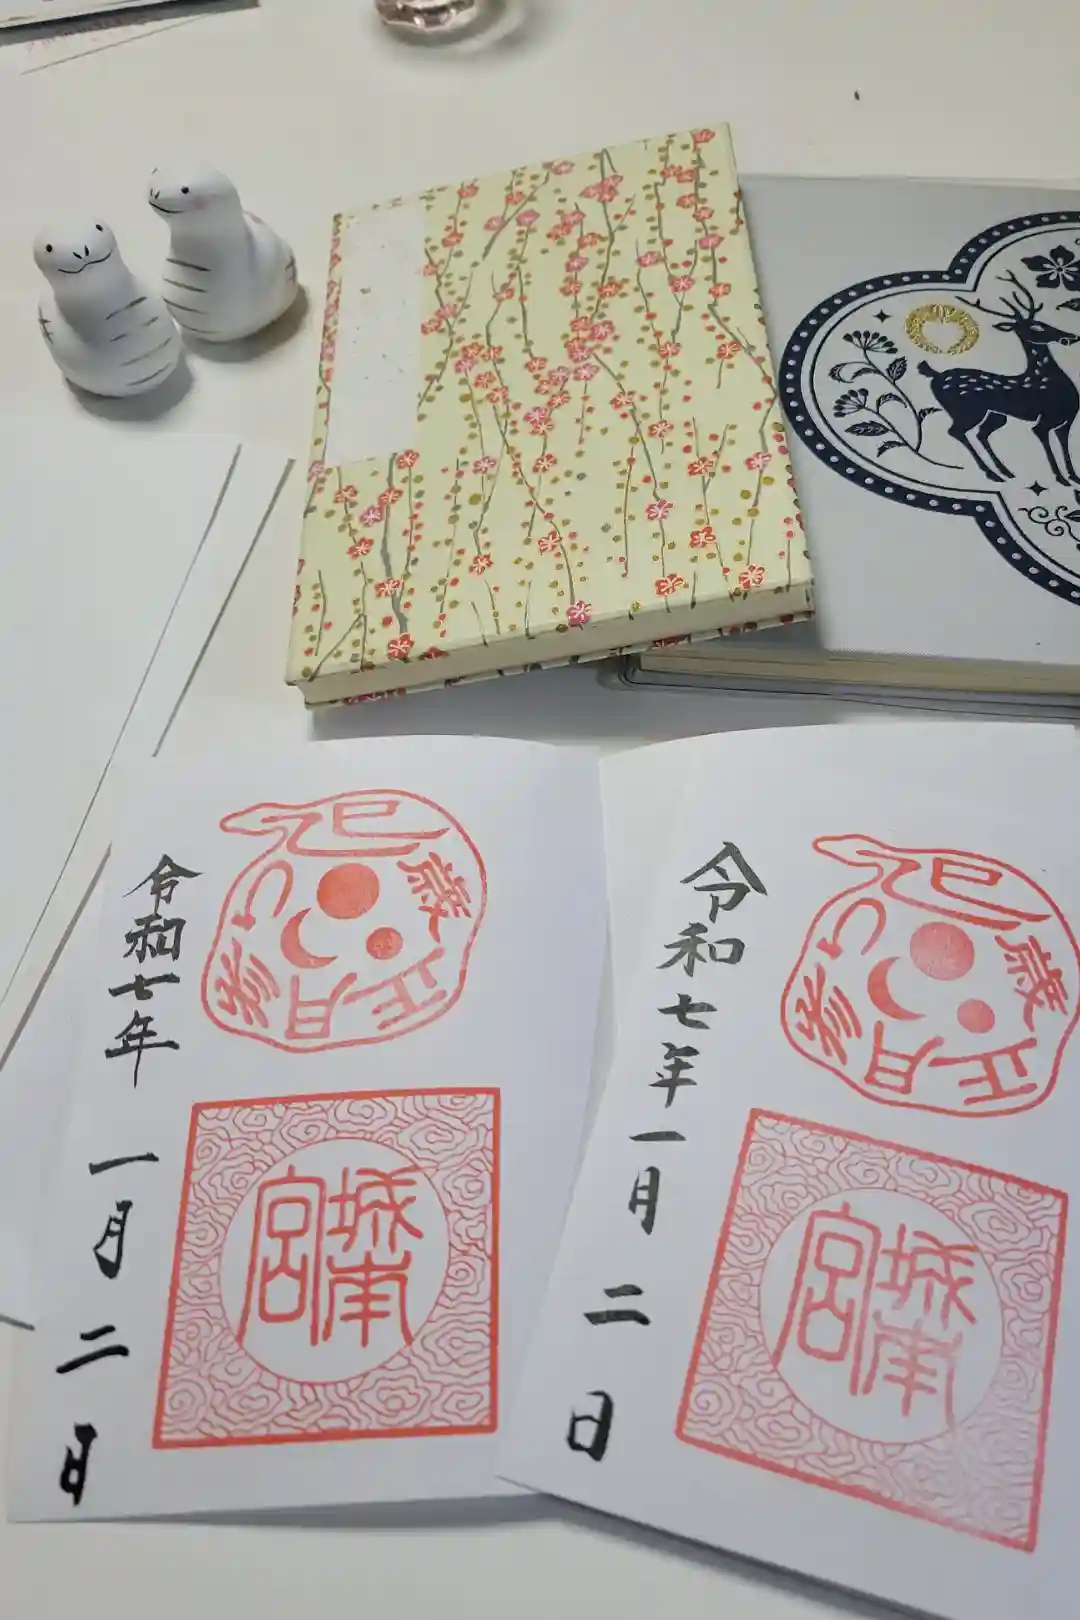 巳歳正月参り
城南宮
令和七年 一月 二日
巳歳正月参り
城南宮
令和七年一月 二日